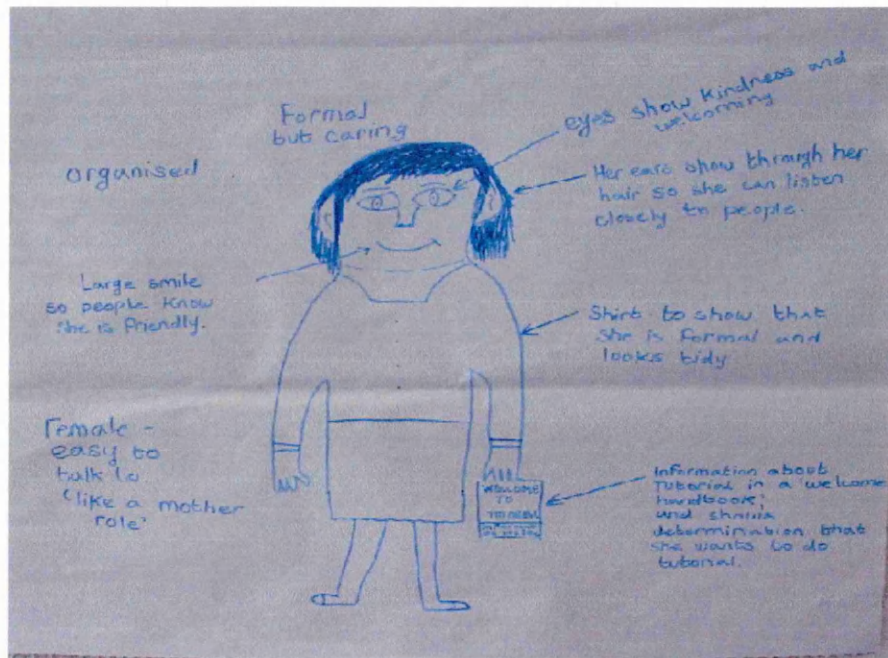 Formal
but caring
eyes show kindness and
welcoming
organised
Her ears show through her
hair so she can listen
closely to people.
Large smile
so people know
she is friendly.
Shirt to show that
she is formal and
looks tidy
Female -
easy to
talk to
'like a mother
role'
Information about
Tutorial in a 'welcome
handbook',
and shows
determination that
she wants to do
tutorial.
WELCOME
TO
TUTORIAL